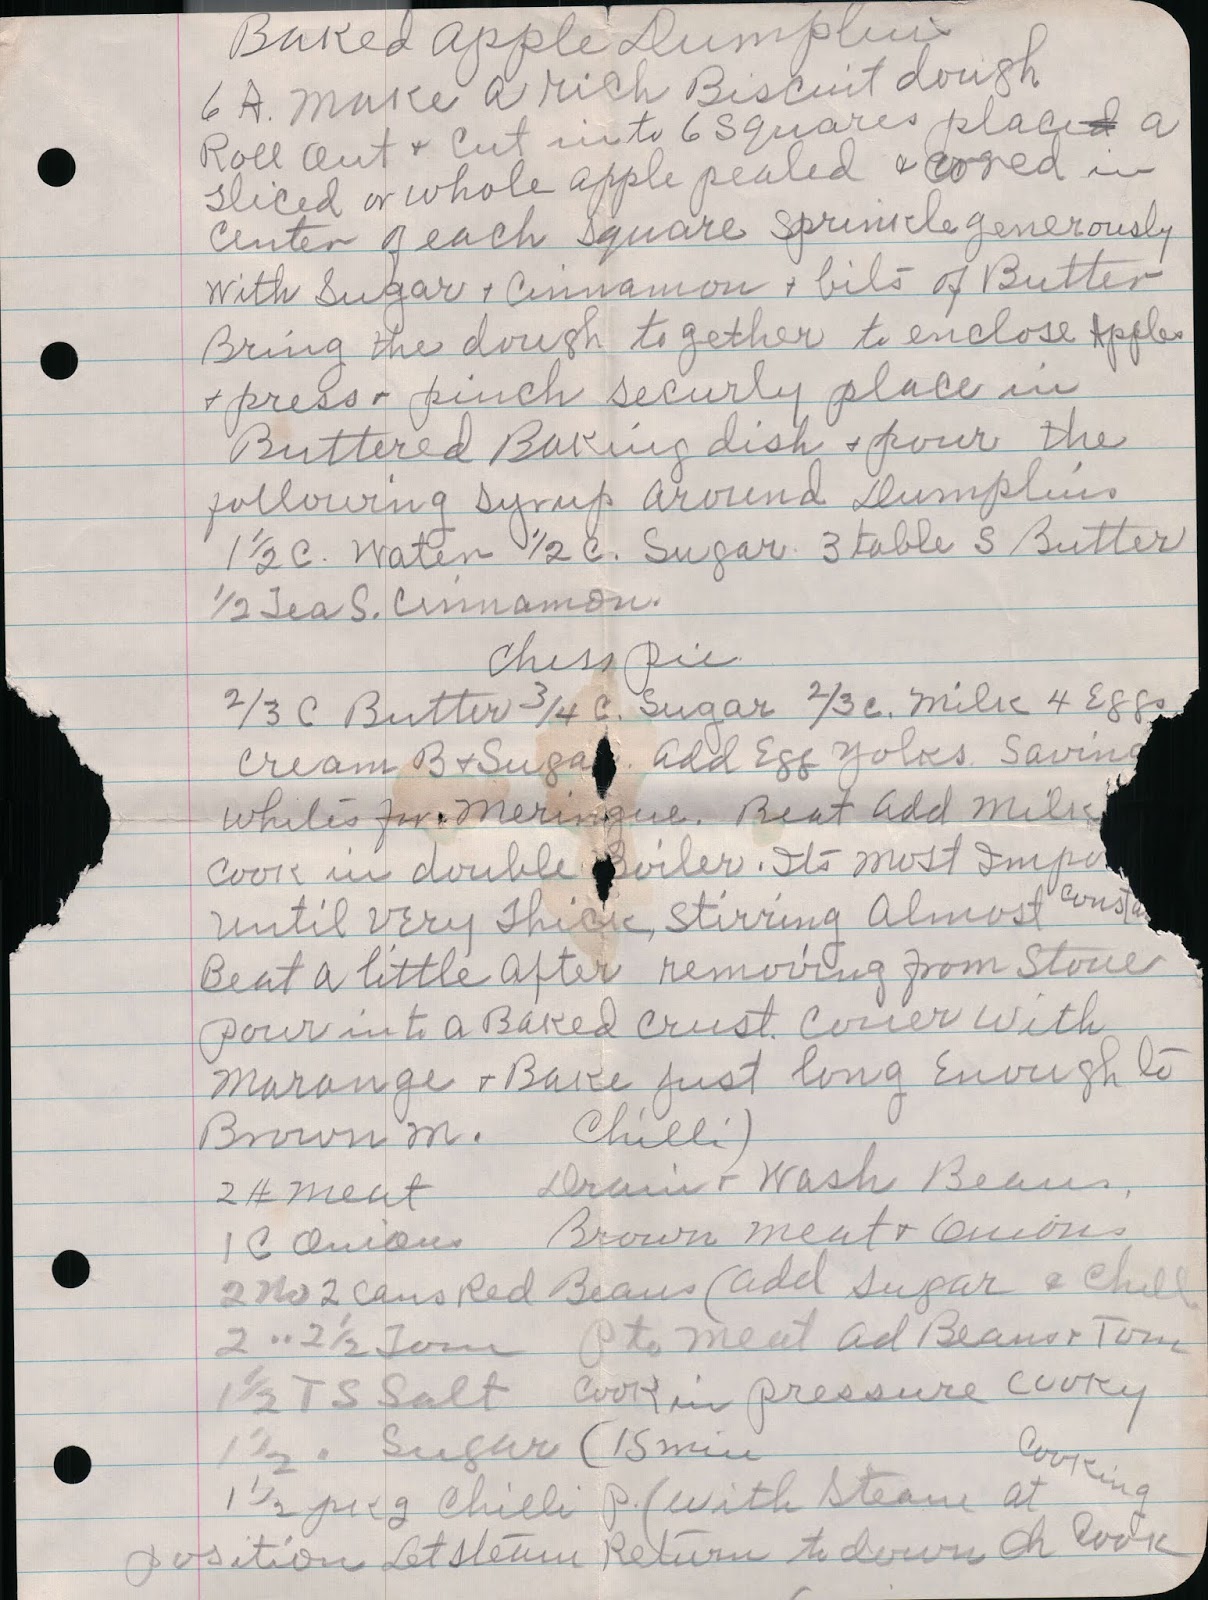 Baked Apple Dumplins
6 A. Make a rich Biscuit dough
Roll Out + Cut into 6 Squares place a
Sliced or whole apple pealed + cored in
Center of each square sprinkle generously
With Sugar + Cinnamon + bits of Butter
Bring the dough together to enclose Apples
+ press + pinch securly place in
Buttered Baking dish + pour the
following syrup around Dumplins
1½ C. Water ½ C. Sugar 3 table S Butter
½ Tea S. Cinnamon.
Chess Pie
2/3 C Butter 3/4 C. Sugar 2/3 c. Milk 4 Eggs
Cream B + Sugar. add Egg yolks. Saving
Whites for Meringue. Beat add Milk
Cook in double Boiler. Its most Impo
Until Very Thick, Stirring Almost Consta
Beat a little after removing from Stove
Pour into a Baked Crust. Cover With
Marange + Bake just long Enough to
Brown M. Chilli)
2 # Meat Drain + Wash Beans,
1 C Onions Brown Meat + Onions
2 No 2 Cans Red Beans (add Sugar & Chill
2 " 2½ Tom P to meat ad Beans + Tom
1½ TS Salt Cook in pressure Cooky
1½ . Sugar (15 min
1½ pkg Chilli P. (With Steam at Cooking
position Let steam Return to down Ch Cook